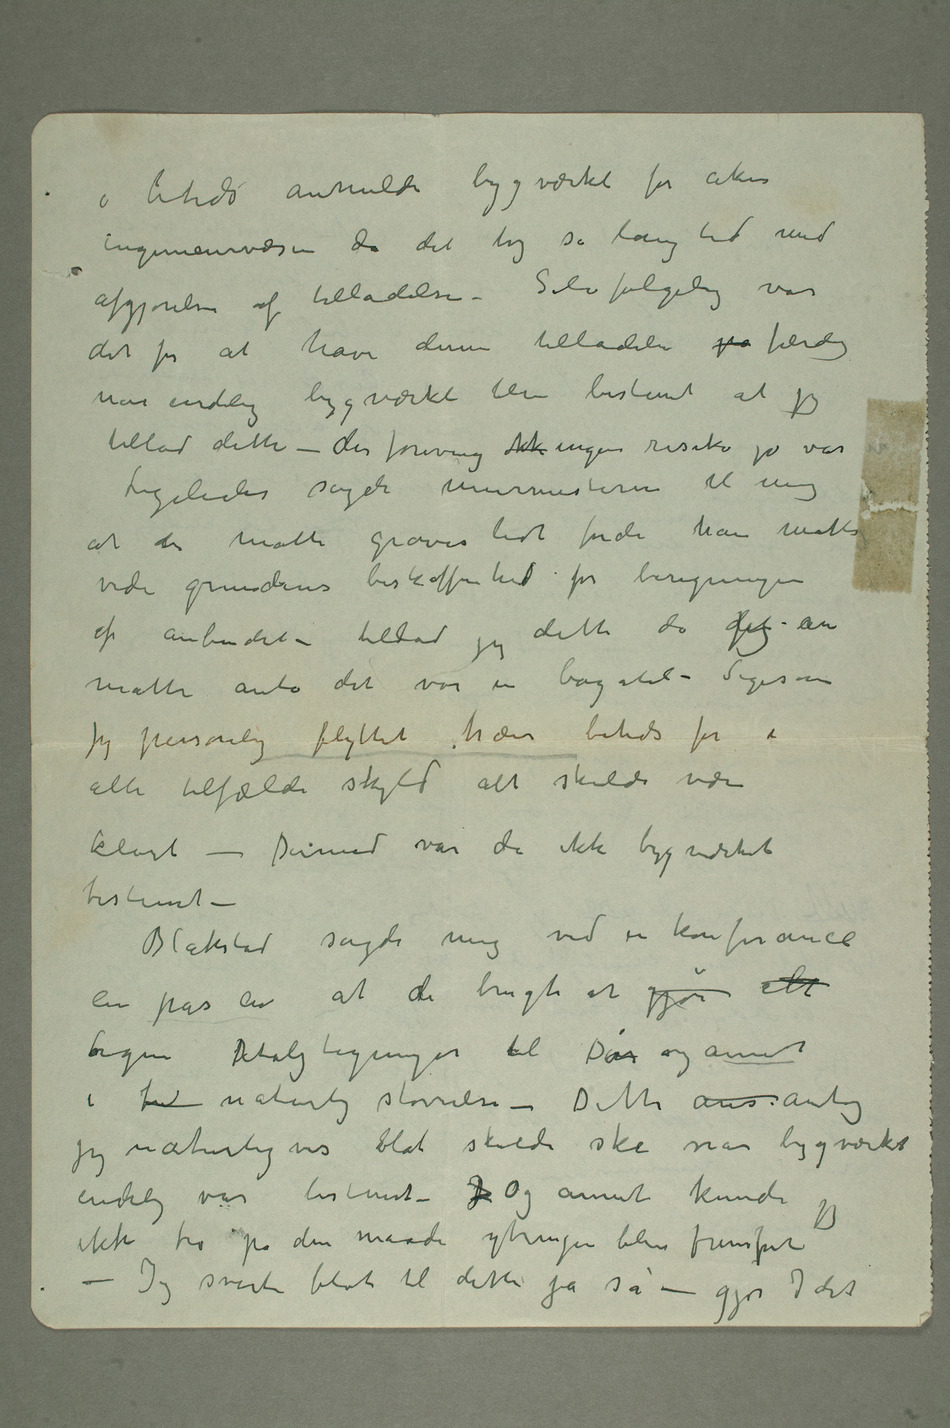 i betids anmelde bygværket for akers
ingeniørvæsen da det tog så lang tid med
afgjørelsen af tilladelsen – Selvfølgelig var
det for at have denne tilladelse på færdig
når endelig bygværket blev bestemt at jeg
tillod dette – der foruvrig ikk ingen risiko jo var
Ligeledes sagde murmesteren til mig
at der måtte graves lidt fordi han måtte
vide grundens beskaffenhed for beregningen
af anbudet – tillod jeg dette da jeg an
måtte anta det var en bagatel – Ligesom
jeg personlig flyttet trær betids for i
alle tilfælde skyld alt skulde være
klart – Dermed var da ikke bygverket
bestemt –
Blakstad sagde mig ved en konferance
en pas en at de brugte at gjøre alt
tegne Detalj tegninger til Dør og annet
i ful naturlig størrelse – Dette ans antog
jeg naturligvis blot skulde ske når bygværket
endelig var bestemt – J Og annet kunde jeg
ikke tro på den maade ytringen blev fremført
– Jeg svarte blot til dette ja så – gjør I det